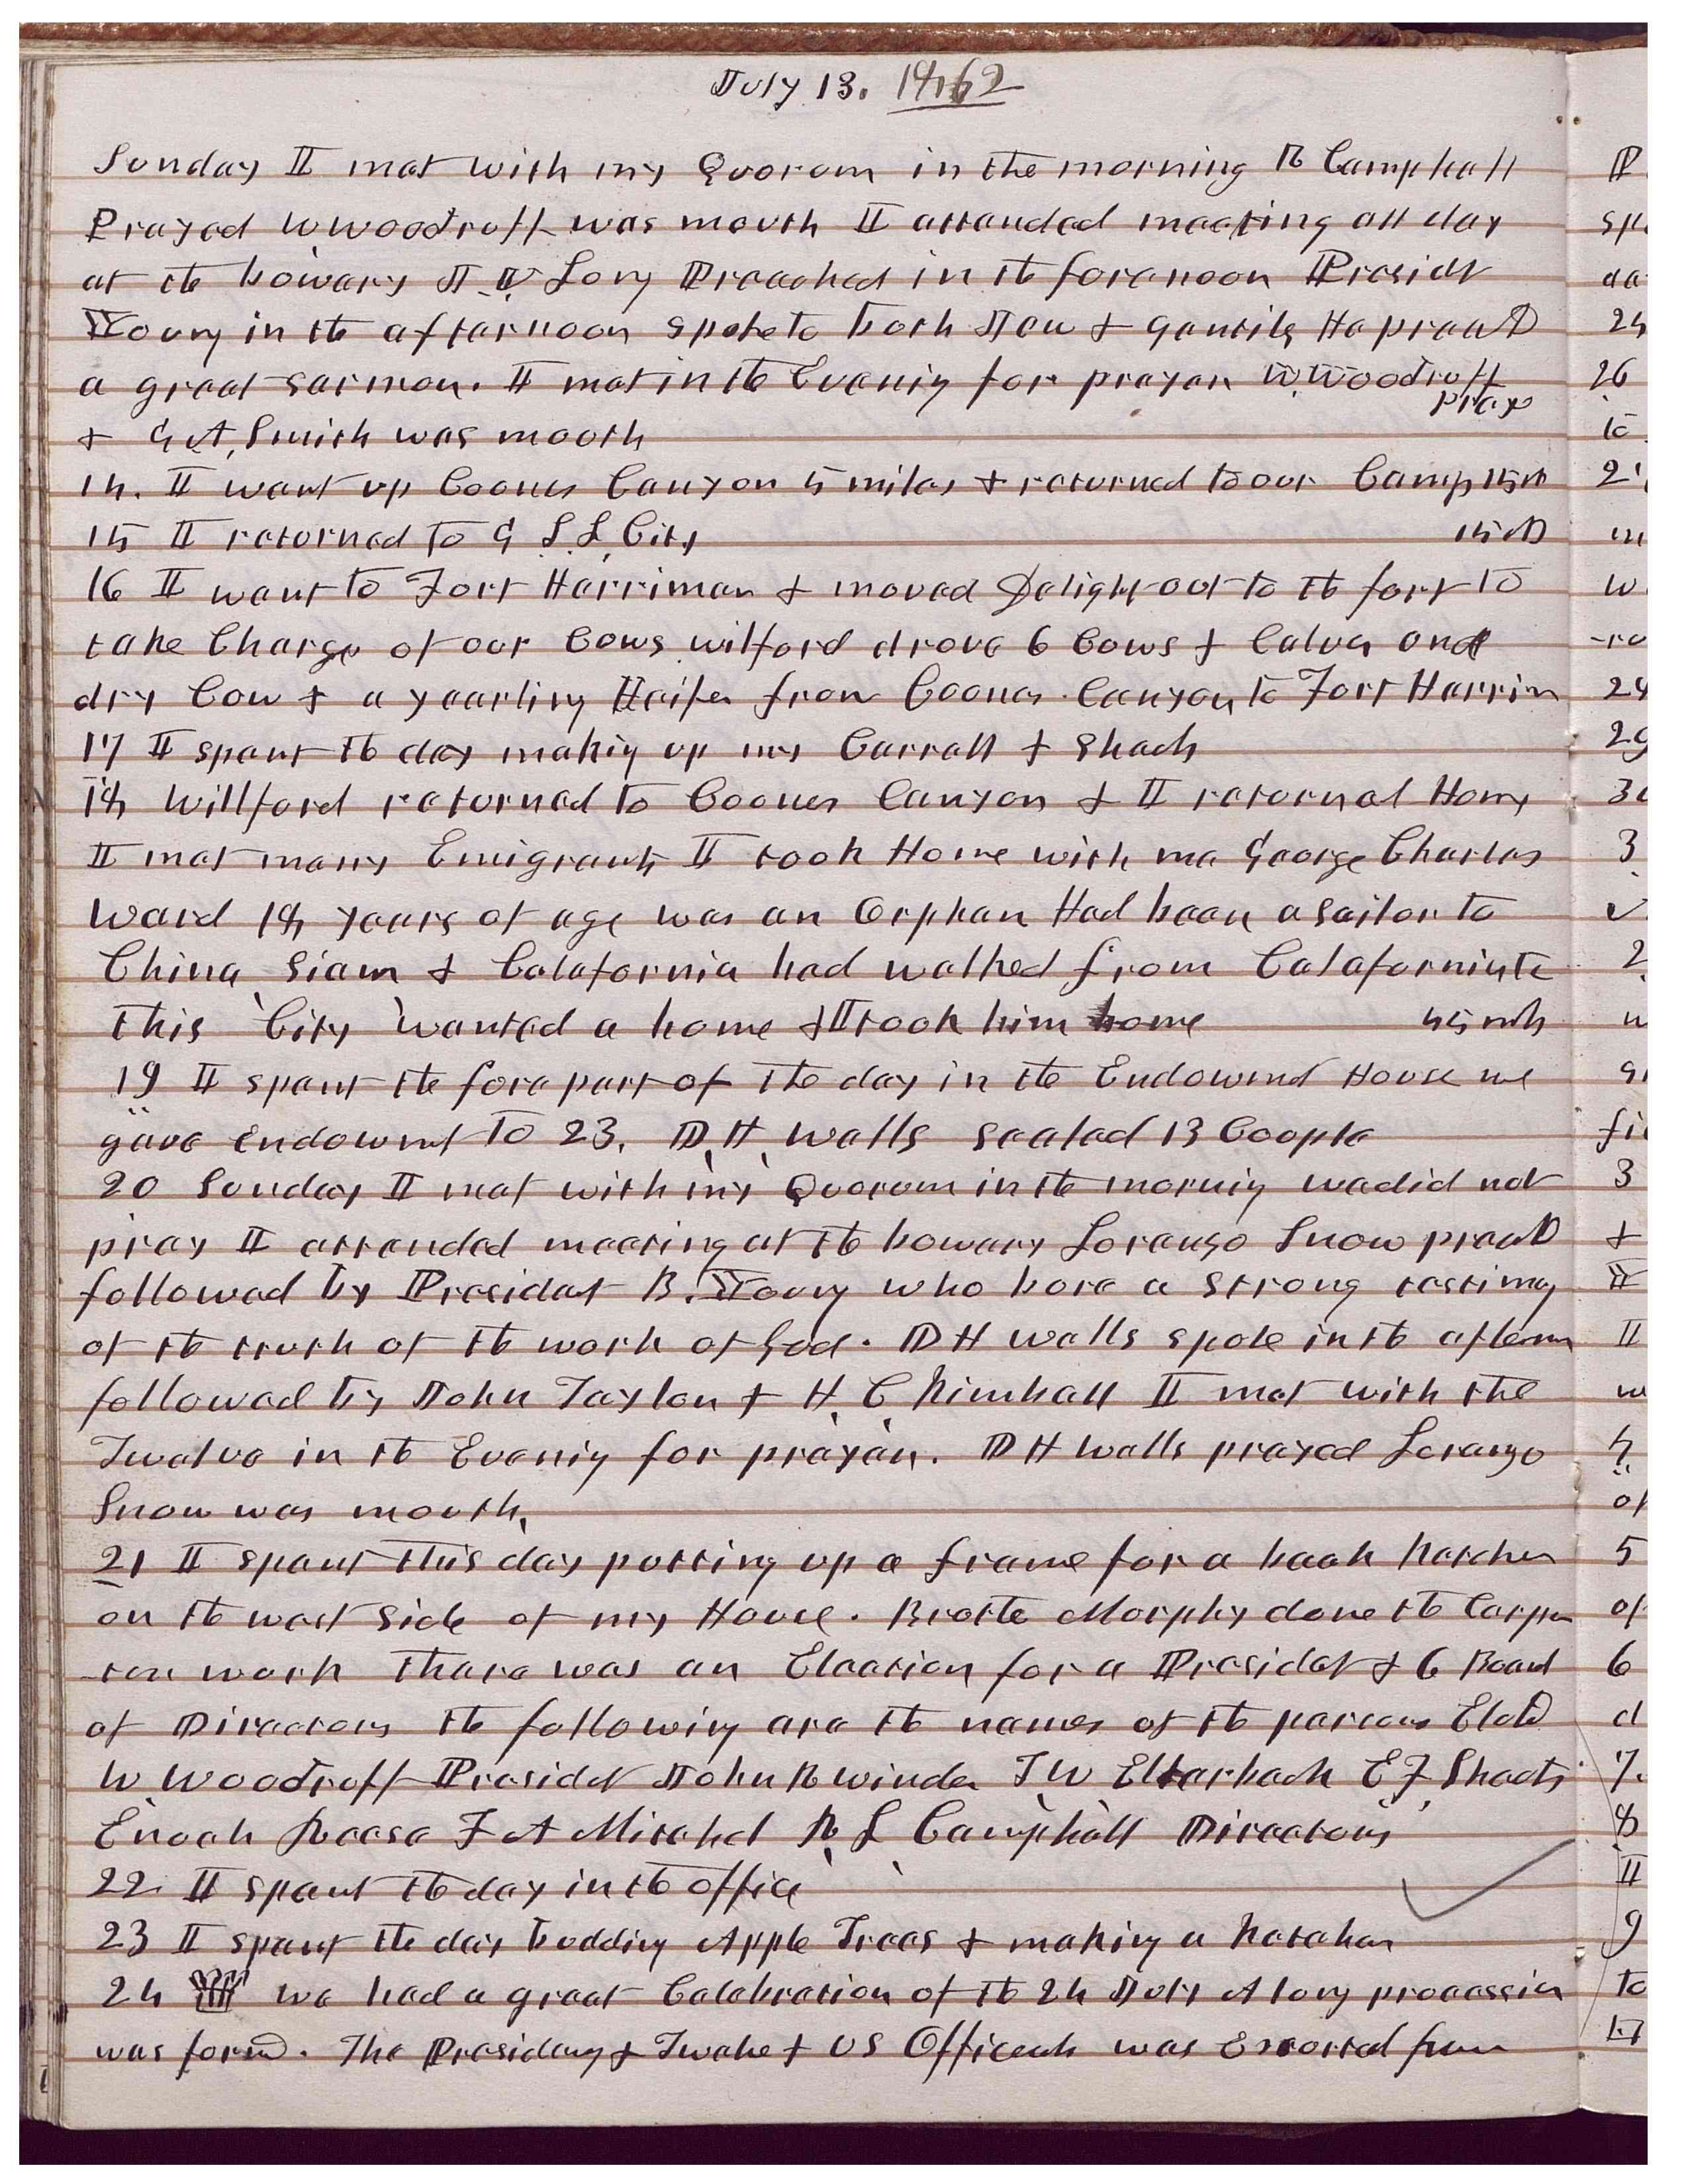 July 13. 1862
Sunday I met with my Quorum in the morning R Campbell
Prayed W Woodruff was mouth I attended meeting all day
at the bowery J V Long Preached in the forenoon Presidt
Young in the afternoon spoke to both Jew & gentile He preachd
a great sermon. I met in the Evening for prayer W Woodruff
prayd
& G A, Smith was mooth
14. I went up Coones Canyon 5 miles & returned to our Camp 15 m
15 I returned to G S L City 15 m
16 I went to Fort Harriman & moved Delight out to the fort to
take Charge of our Cows wilford drove 6 Cows & Calves one
dry Cow & a yearling Heifer from Coones Canyon to Fort Harrim
17 I spent the day making up my Carrall & Shack
18 Willford returned to Coones Canyon & I returned Home
I met many Emigrants I took Home with me George Charles
Ward 18 years of age was an Orphan Had been a sailor to
China Siam & Calafornia had walked from Calafornia to
This City wanted a home & I took him home 45 mls
19 I spent the fore part of the day in the Endowmet House we
gave endowmet to 23. D. H. Wells sealed 13 Coople
20 Sunday I met with my Quorum in the morning we did not
pray I attended meeting at the bowery Lorenzo Snow preachd
followed by Presidet B. Young who bore a strong testimony
of the truth of the work of God. D H Wells spoke in the afternn
followed by John Taylor & H. C Kimball I met with the
Twelve in the Evening for prayer. D H Wells prayed Lorenzo
Snow was mouth,
21 I spent this day putting up a frame for a back Kitchen
on the west side of my House. Brother Morphy done the Carpen
-ter work There was an Election for a Presidet & 6 Board
of Directors the following are the names of the persons Elctd
W Woodruff Presidet John R winder T W Ellerback E F, Sheets
Enoch Reese F A Mitchel R L Campbell Directors
22 I spent the day in the office
23 I spent the day budding Apple Trees & making a Kitchen
24 we had a great Celebration of the 24 July A long procession
was formd. The Presidency & Twelve & US Officers was Escorted from